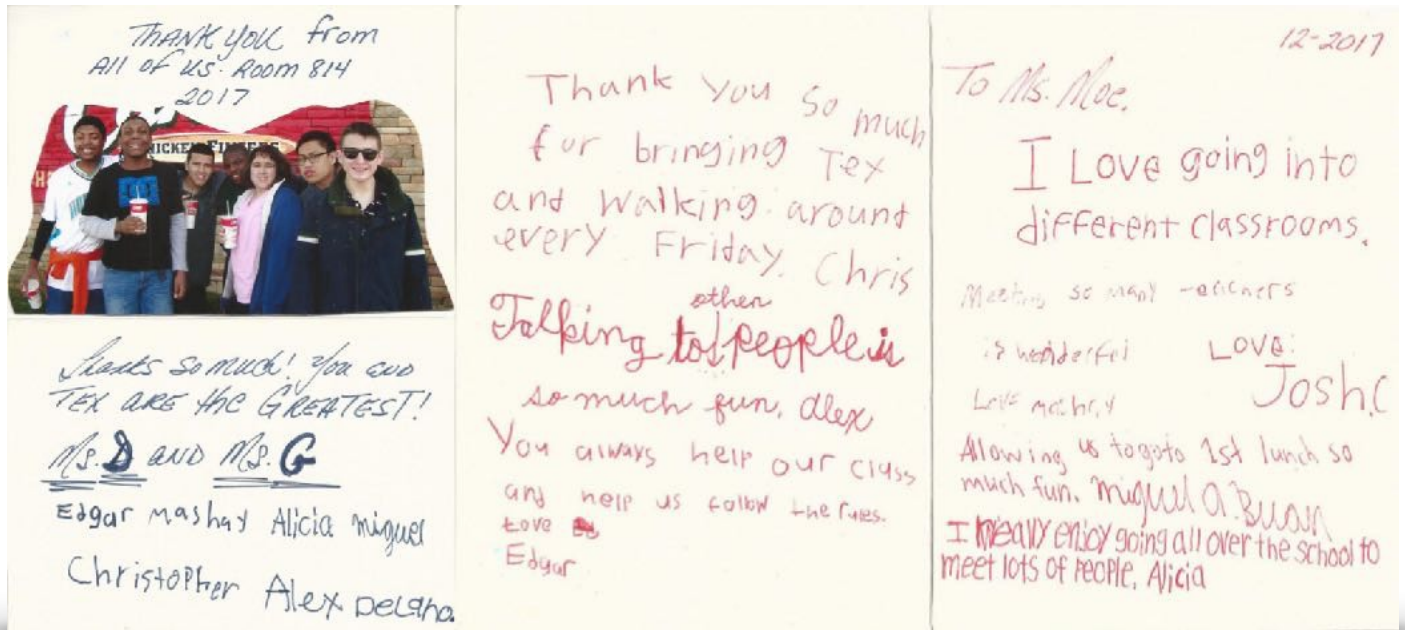 THANK YOU from
All of us. Room 814
2017
CHICKEN FINGERS
Thanks so much! You and
TEX ARE the GREATEST!
Ms. D AND Ms. G
Edgar mashay Alicia miguel
Christopher Alex Delano.
Thank you so much
for bringing Tex
and walking around
every Friday. Chris
other
Talking to people is
so much fun. Alex
You always help our class
and help us follow the rules.
Love
Edgar
12-2017
To Ms. Moe.
I Love going into
different classrooms.
Meeting so many
is wonderful
Love mashay
LOVE:
Josh.C
Allowing us to go to 1st lunch so
much fun. miguel A.
I really enjoy going all over the school to
meet lots of people. Alicia